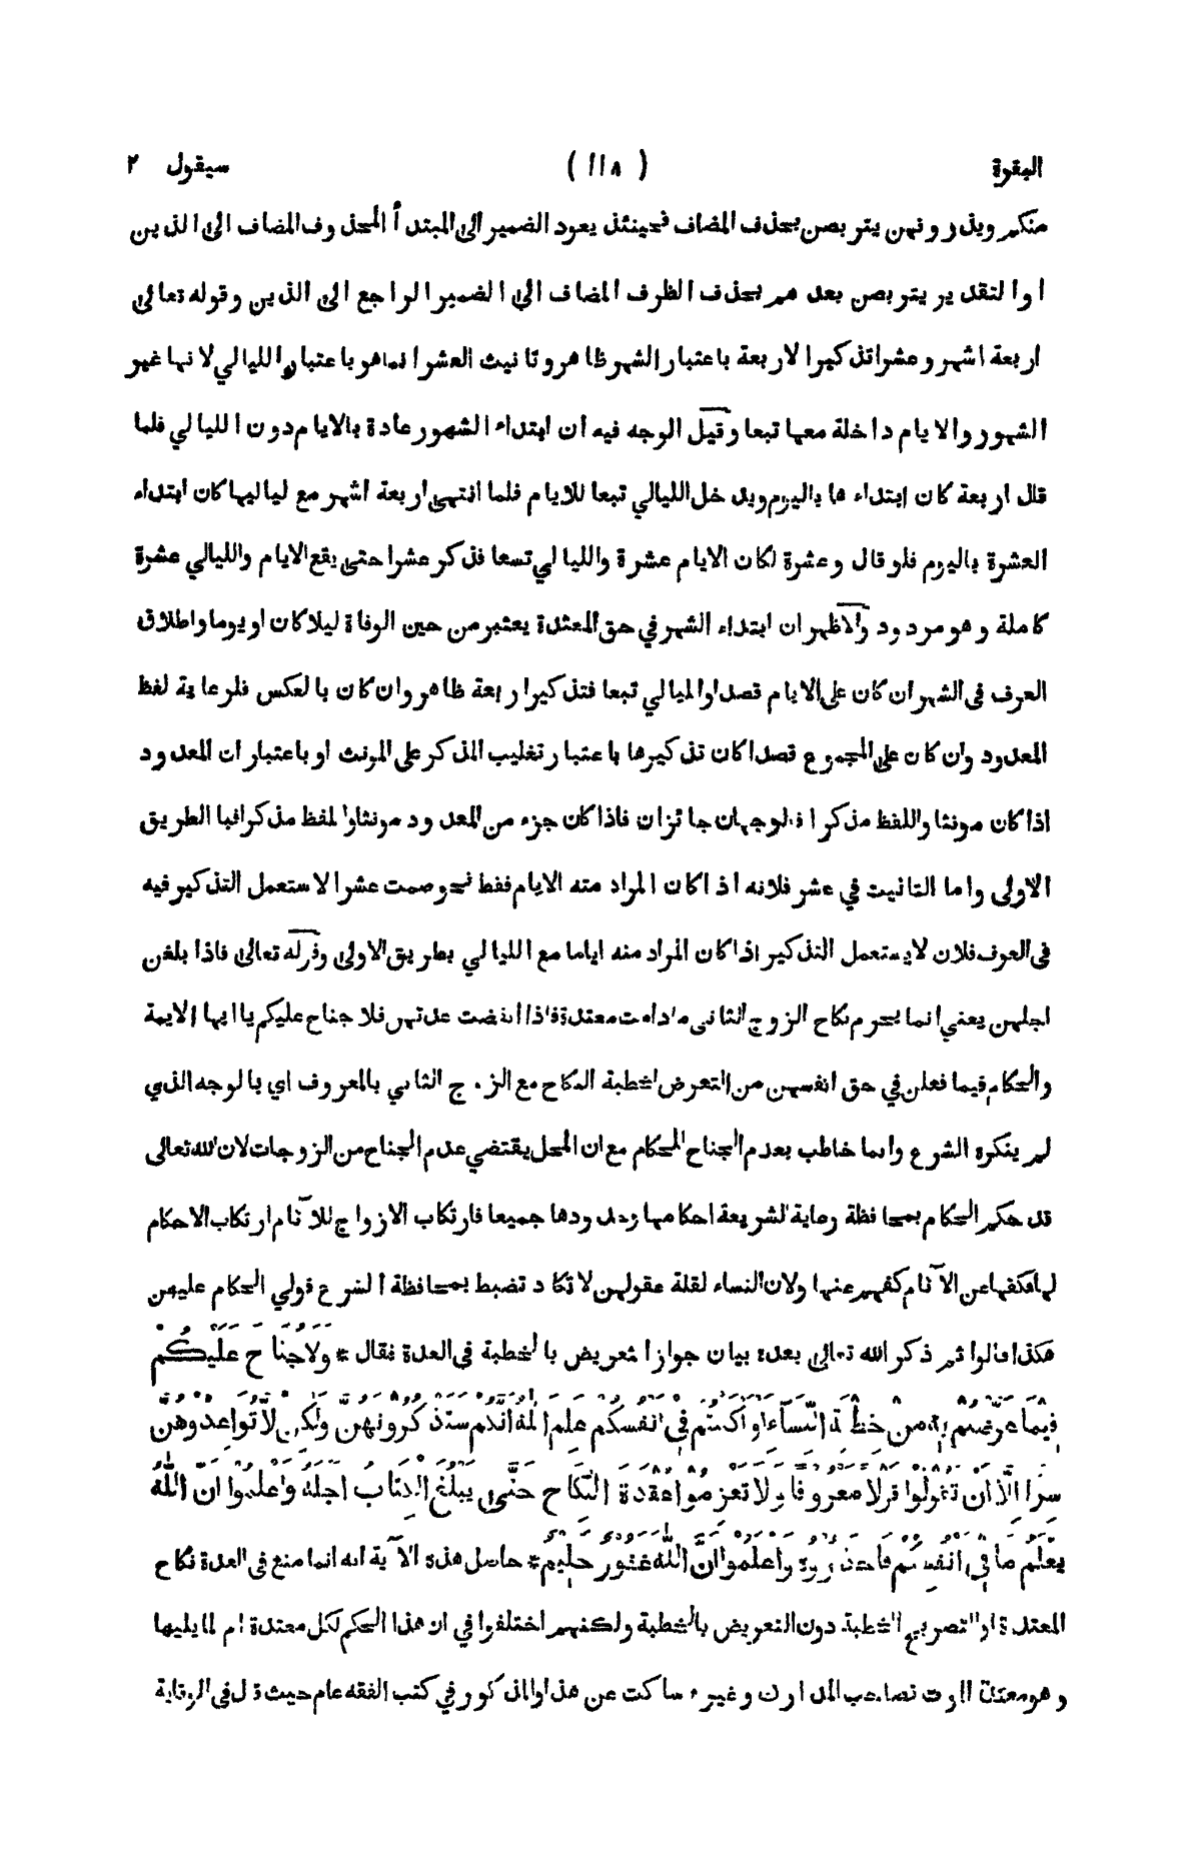 البقرة (١١٨) سيقول ٢
منكم ويذرونهن يتربصن بحذف المضاف فحينئذ يعود الضمير الى المبتدأ المحذوف المضاف الى الذين
او التقدير يتربصن بعدهم بحذف الظرف المضاف الى الضمير الراجع الى الذين وقوله تعالى
اربعة اشهر وعشرا تذكير الاربعة باعتبار الشهر ظاهر وتانيث العشر انما هو باعتبار الليالي لانها غير
الشهور والايام داخلة معها تبعا وقيل الوجه فيه ان ابتداء الشهور عادة بالايام دون الليالي فلما
قال اربعة كان ابتداء ها باليوم ويدخل الليالي تبعا للايام فلما انتهى اربعة اشهر مع لياليها كان ابتداء
العشرة باليوم فلو قال وعشرة لكان الايام عشرة والليالي تسعا فذكر عشرا حتى يقع الايام والليالي عشرة
كاملة وهو مردود والاظهر ان ابتداء الشهر في حق المعتدة يعتبر من حين الوفاة ليلا كان او يوما واطلاق
العرف فى الشهر ان كان على الايام قصدا والليالي تبعا فتذكير اربعة ظاهر وان كان بالعكس فلرعاية لفظ
المعدود وان كان على المجموع قصدا كان تذكيرها باعتبار تغليب المذكر على المونث او باعتبار ان المعدود
اذا كان مونثا واللفظ مذكرا فالوجهان جائزان فاذا كان جزء من المعدود مونثا والفظ مذكرا فبا الطريق
الاولى واما التانيث في عشر فلانه اذا كان المراد منه الايام فقط نحو صمت عشرا لاستعمل التذكير فيه
فى العرف فلان لايستعمل التذكير اذا كان المراد منه اياما مع الليالي بطريق الاولى وقوله تعالى فاذا بلغن
اجلهن يعني انما يحرم نكاح الزوج الثانى مادامت معتدة فاذا انقضت عدتهن فلا جناح عليكم يا ايها الايمة
والحكام فيما فعلن في حق انفسهن من التعرض لخطبة النكاح مع الزوج الثاني بالمعروف اي بالوجه الذي
لم ينكره الشرع وانما خاطب بعدم الجناح الحكام مع ان المحل يقتضي عدم الجناح من الزوجات لان لله تعالى
قد حكم الحكام بمحافظة رعاية الشريعة احكامها وحدودها جميعا فارتكاب الازواج للآثام ارتكاب الاحكام
لها فكفها عن الآثام كفهم عنها ولان النساء لقلة عقولهن لاتكاد تضبط بمحافظة الشرع فولي الحكام عليهن
هكذا قالوا ثم ذكر الله تعالى بعده بيان جواز التعريض بالخطبة فى العدة فقال * وَلَاجُنَاحَ عَلَيْكُمْ
فِيْمَا عَرَّضْتُمْ بِهٖ مِنْ خِطْبَةِ النِّسَآءِ اَوْ اَكْنَنْتُمْ فِيْ اَنْفُسِكُمْ عَلِمَ اللهُ اَنَّكُمْ سَتَذْكُرُوْنَهُنَّ وَلٰكِنْ لَّا تُوَاعِدُوْهُنَّ
سِرًّا اِلَّا اَنْ تَقُوْلُوْا قَوْلًا مَعْرُوْفًا وَلَا تَعْزِمُوْا عُقْدَةَ النِّكَاحِ حَتّٰى يَبْلُغَ الْكِتَابُ اَجَلَهٗ وَاعْلَمُوْا اَنَّ اللهَ
يَعْلَمُ مَا فِيْ اَنْفُسِكُمْ فَاحْذَرُوْهُ وَاعْلَمُوْا اَنَّ اللهَ غَفُوْرٌ حَلِيْمٌ * حاصل هذه الآية انه انما منع فى العدة نكاح
المعتدة او التصريح الخطبة دون التعريض بالخطبة ولكنهم اختلفوا في ان هذا الحكم لكل معتدة ام لما يليها
وهو معتدة الموت فصاحب المدارك وغيره ساكت عن هذا والمذكور في كتب الفقه عام حيث قال فى الوقاية